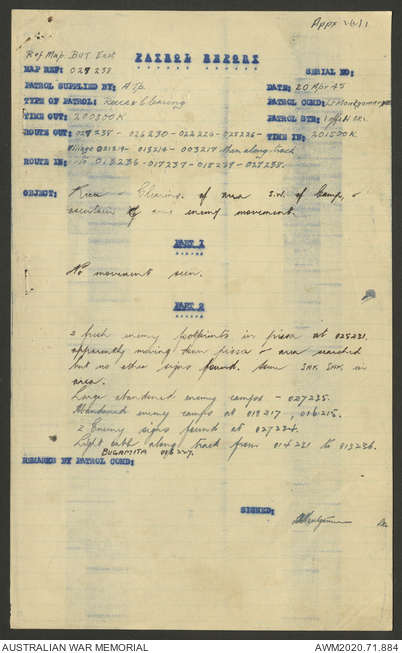 Appx 2(b)1
Ref Map: BUT East
PATROL REPORT
MAP REF: 027238
SERIAL NO:
PATROL SUPPLIED BY: A Tp.
DATE: 20 Apr 45
TYPE OF PATROL: Recce & Clearing
PATROL COMD: Lt Montgomery
TIME OUT: 200800K
PATROL STR: 1 off 11 ORs.
ROUTE OUT: 027238 - 026230 - 022226 - 025226 -
TIME IN: 201500K.
Village 021219 - 013214 - 003217 then along track
ROUTE IN: to 013236 - 017237 - 018239 - 027238.
OBJECT: Recce & Clearing of area S.W. of Camp, &
ascertain if any enemy movement.
PART 1
No movement seen.
PART 2
2 fresh enemy footprints in at 025231.
apparently moving & area searched
but no other signs found. Some SAK SAK in
area.
Large abandoned enemy camps - 027235.
Abandoned enemy camps at 018217, 016215.
2 Enemy signs found at 027234.
Light along track from 014231 to 013236.
BUGAMITA 016227.
REMARKS BY PATROL COMD:
SIGNED:
AUSTRALIAN WAR MEMORIAL
AWM2020.71.884